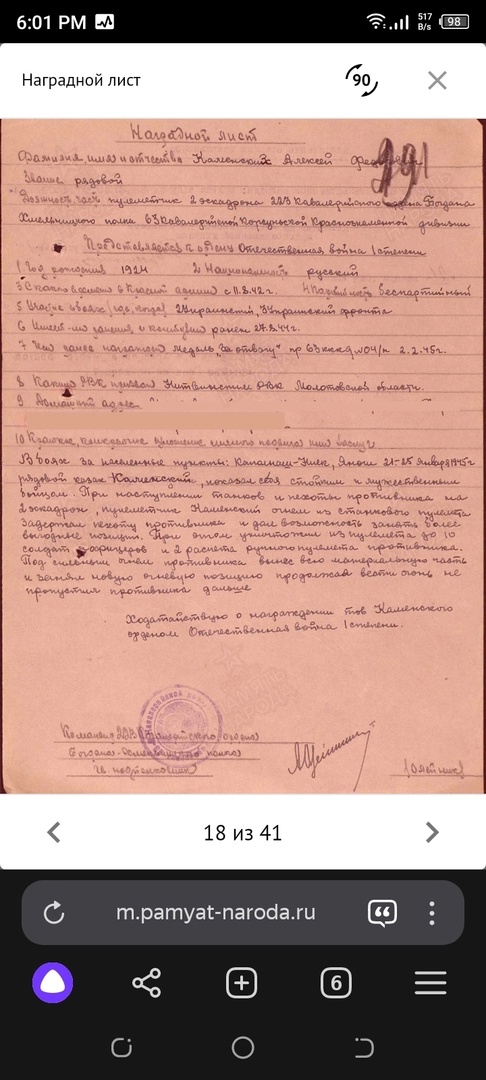 6:01 PM
517 B/s
98
Наградной лист
90
Наградной лист
Фамилия, имя и отчество Каменских Алексей Федорович
Звание рядовой
Должность часть пулеметчик 2 эскадрона 223 Кавалерийского ордена Богдана
Хмельницкого полка 63 Кавалерийской Корсуньской Краснознаменной дивизии
Представляется к ордену Отечественная война I степени
1 Год рождения 1924 2 Национальность русский
3 С какого времени в Красной армии с 11.8.42г. 4 Партийность беспартийный
5 Участие в боях (где, когда) 2 Украинский, 3 Украинский фронта
6 Имеет ли ранения и контузии ранен 27.8.44г.
7 Чем ранее награжден медаль "За отвагу" пр 63 кккд №04/н 2.2.45г.
8 Каким РВК призван Нытвинским РВК Молотовской области.
9 Домашний адрес
10 Краткое, конкретное изложение личного подвига или заслуг
В боях за населенные пункты: Янош 21-25 января 1945г
рядовой казак Каменский, показал себя стойким и мужественным
бойцом. При наступлении танков и пехоты противника на
2 эскадрон, пулеметчик Каменский огнем из станкового пулемета
задержал пехоту противника и дал возможность занять более
выгодные позиции. При этом уничтожил из пулемета до 10
солдат и офицеров и 2 расчета ручного пулемета противника.
Под сильным огнем противника вынес всю материальную часть
и занял новую огневую позицию продолжал вести огонь не
пропустил противника дальше
Ходатайствую о награждении тов Каменского
орденом Отечественная война I степени.
Командир 223 Кавалерийского ордена
Богдана-Хмельницкого полка
Гв. подполковник
18 из 41
m.pamyat-naroda.ru
6